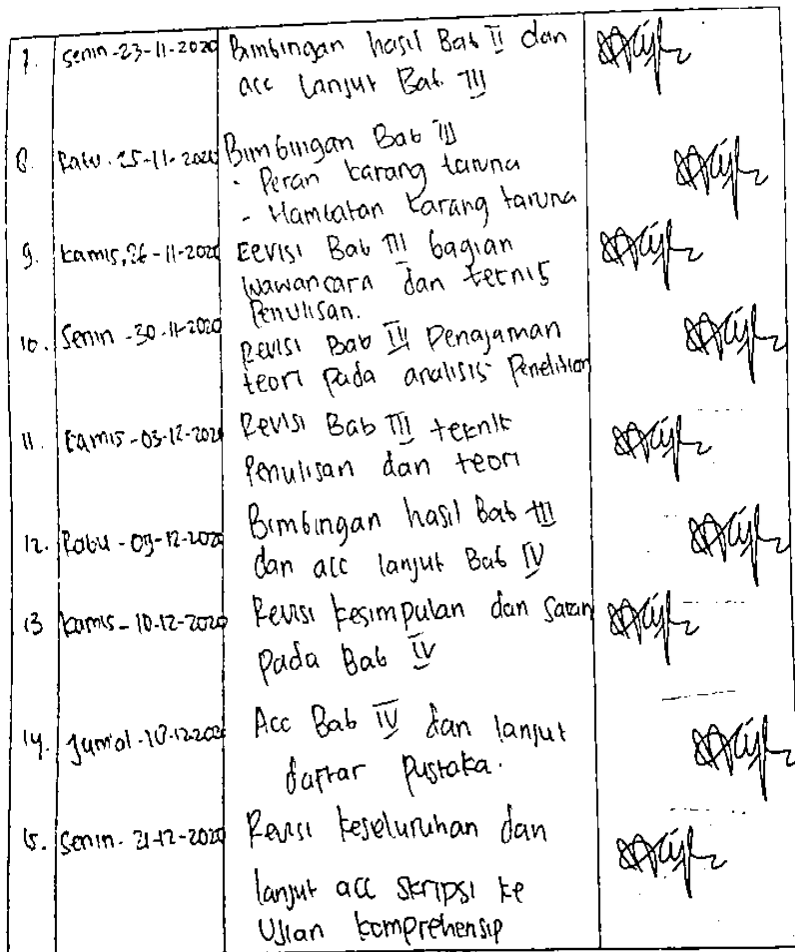 7. Senin -23-11-2020 Bimbingan hasil Bab II dan
acc lanjut Bab III
8. Rabu. 25-11-2020 Bimbingan Bab III
- Peran karang taruna
- Hambatan karang taruna
9. kamis, 26-11-2020 Revisi Bab III bagian
wawancara dan teknis
Penulisan.
10. Senin -30-11-2020 Revisi Bab III Penajaman
teori pada analisis Penelitian
11. Kamis -03-12-2020 Revisi Bab III teknik
Penulisan dan teori
12. Rabu -09-12-2020 Bimbingan hasil Bab III
dan acc lanjut Bab IV
13 kamis - 10-12-2020 Revisi kesimpulan dan Saran
Pada Bab IV
14. Jum'at -18-12-2020 Acc Bab IV dan lanjut
daftar Pustaka.
15. Senin. 21-12-2020 Revisi keseluruhan dan
lanjut acc skripsi ke
Ujian komprehensip